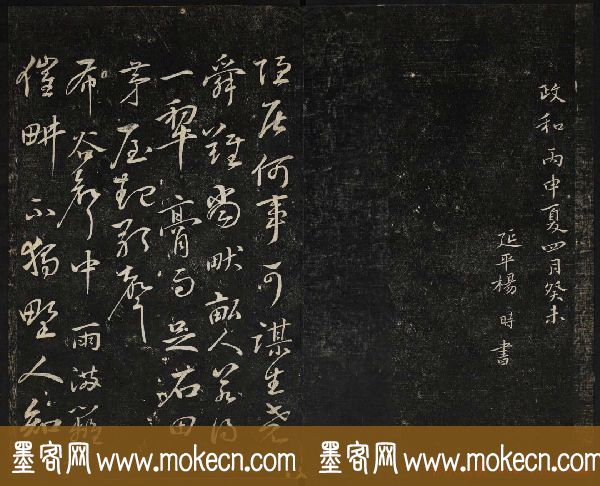 政和丙申夏四月癸未
延平楊時書
隱居何事可謀生堯
舜畎畝人若得
一犁膏雨足右田
茅屋起歌聲
布谷聲中雨滿
催耕不獨野人知
墨客网 www.mokecn.com 墨客网 www.mokecn.com